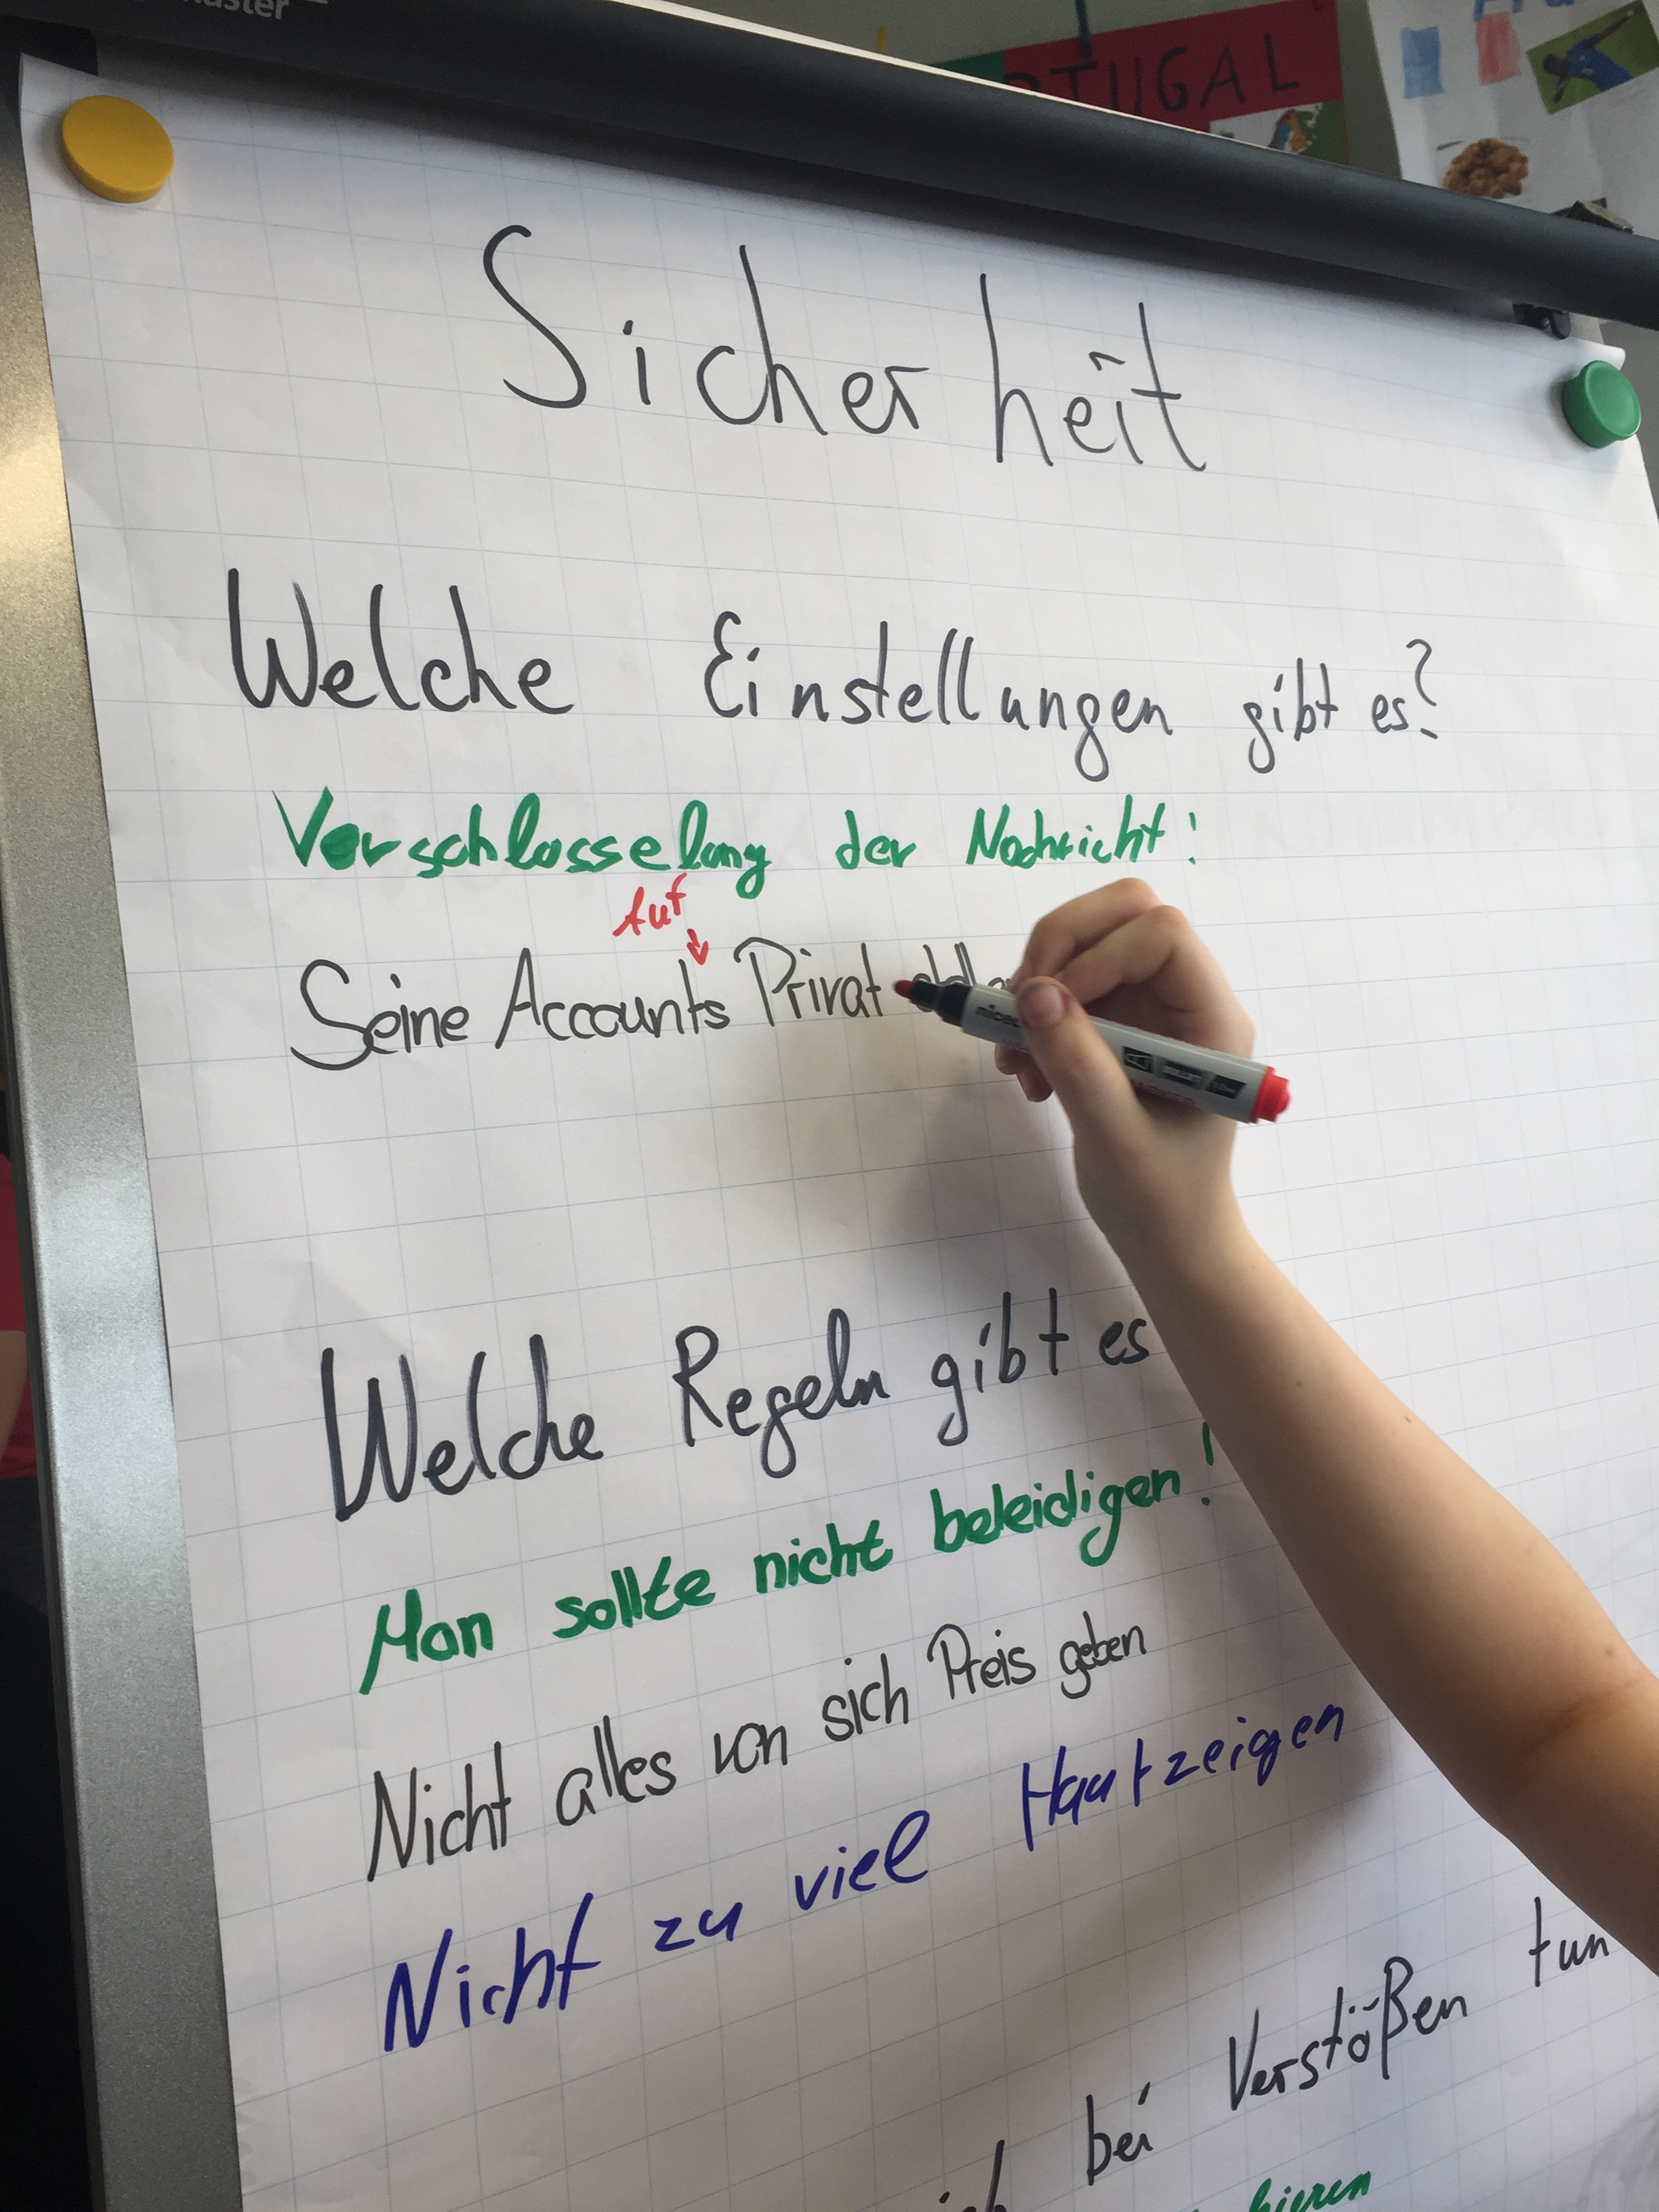 aster
TUGAL
Sicherheit
Welche Einstellungen gibt es?
Verschlosselung der Nachricht!
Auf
Seine Accounts Privat
Welche Regeln gibt es
Man sollte nicht beleidigen!
Nicht alles von sich Preis geben
Nicht zu viel Haut zeigen
bei Verstößen tun